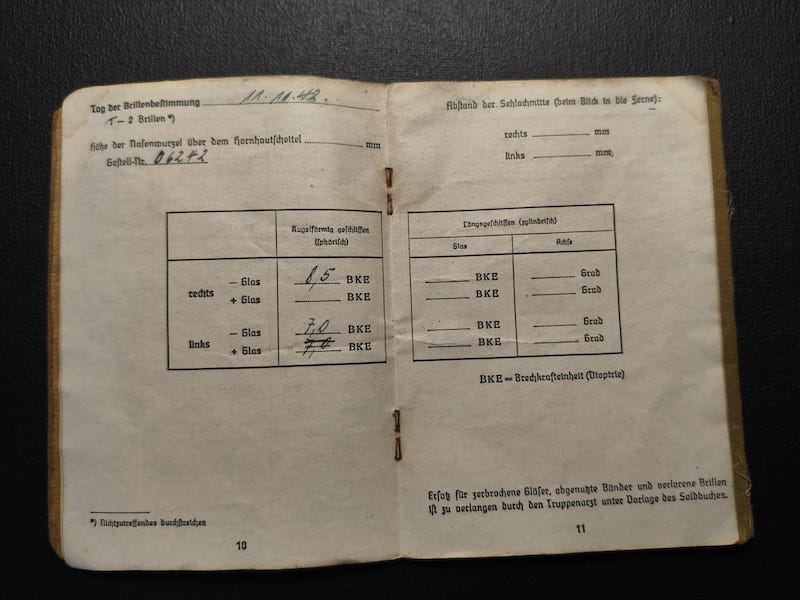 Tag der Brillenbestimmung 11. 11. 42.
1 – 2 Brillen *)
Höhe der Nasenwurzel über dem Hornhautscheitel mm
Gestell-Nr. 06242
Kugelförmig geschliffen
(sphärisch)
rechts
– Glas 8,5 BKE
+ Glas BKE
links
– Glas 7,0 BKE
+ Glas 7,0 BKE
*) Nichtzutreffendes durchstreichen
10
Abstand der Sehlochmitte (beim Blick in die Ferne):
rechts mm
links mm
Längsgeschliffen (zylindrisch)
Glas Achse
BKE Grad
BKE Grad
BKE Grad
BKE Grad
BKE = Brechkrafteinheit (Dioptrie)
Ersatz für zerbrochene Gläser, abgenutzte Bänder und verlorene Brillen
ist zu verlangen durch den Truppenarzt unter Vorlage des Soldbuches.
11